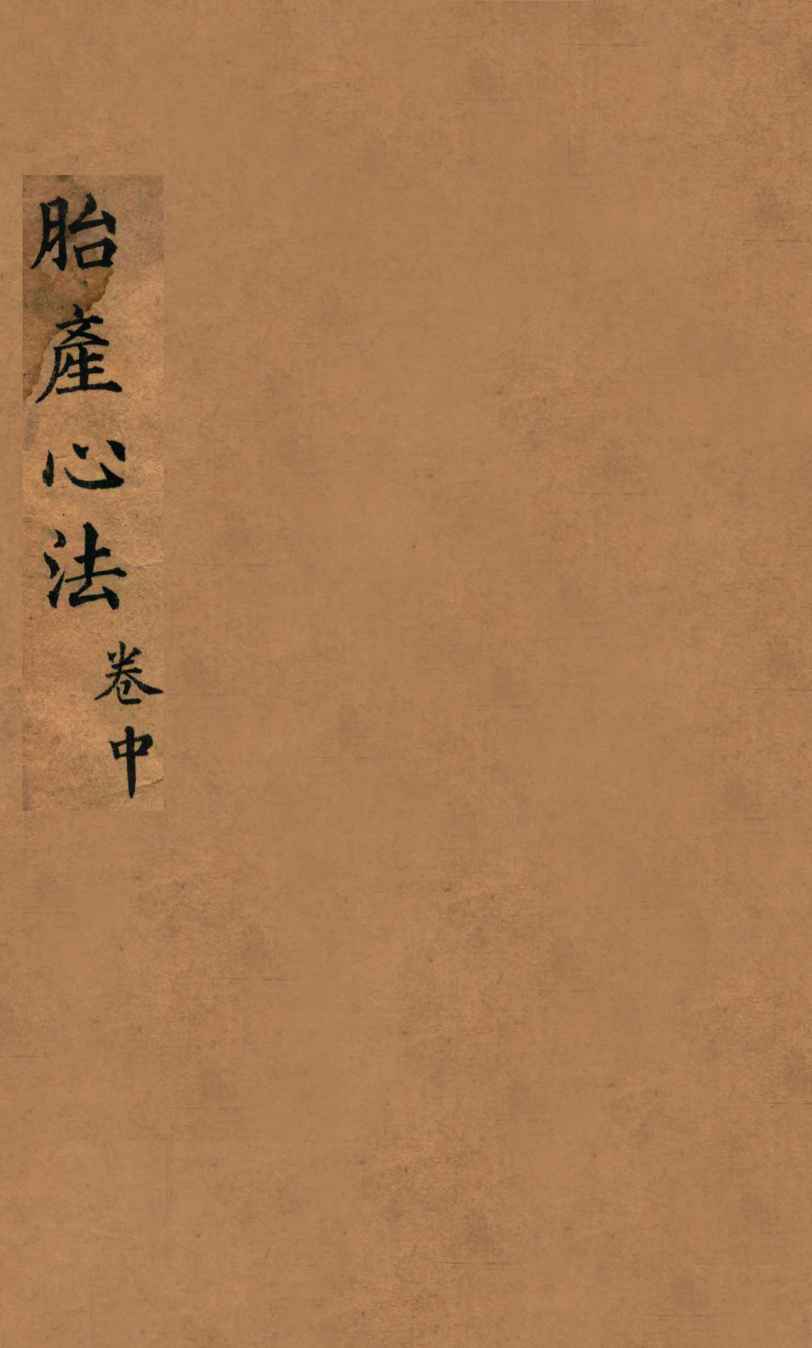 胎產心法
卷中